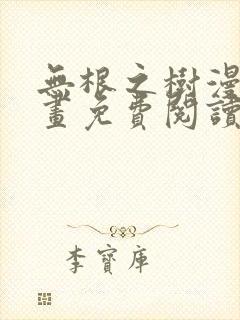 無根之樹漫
畫免費閱讀
李寶庫